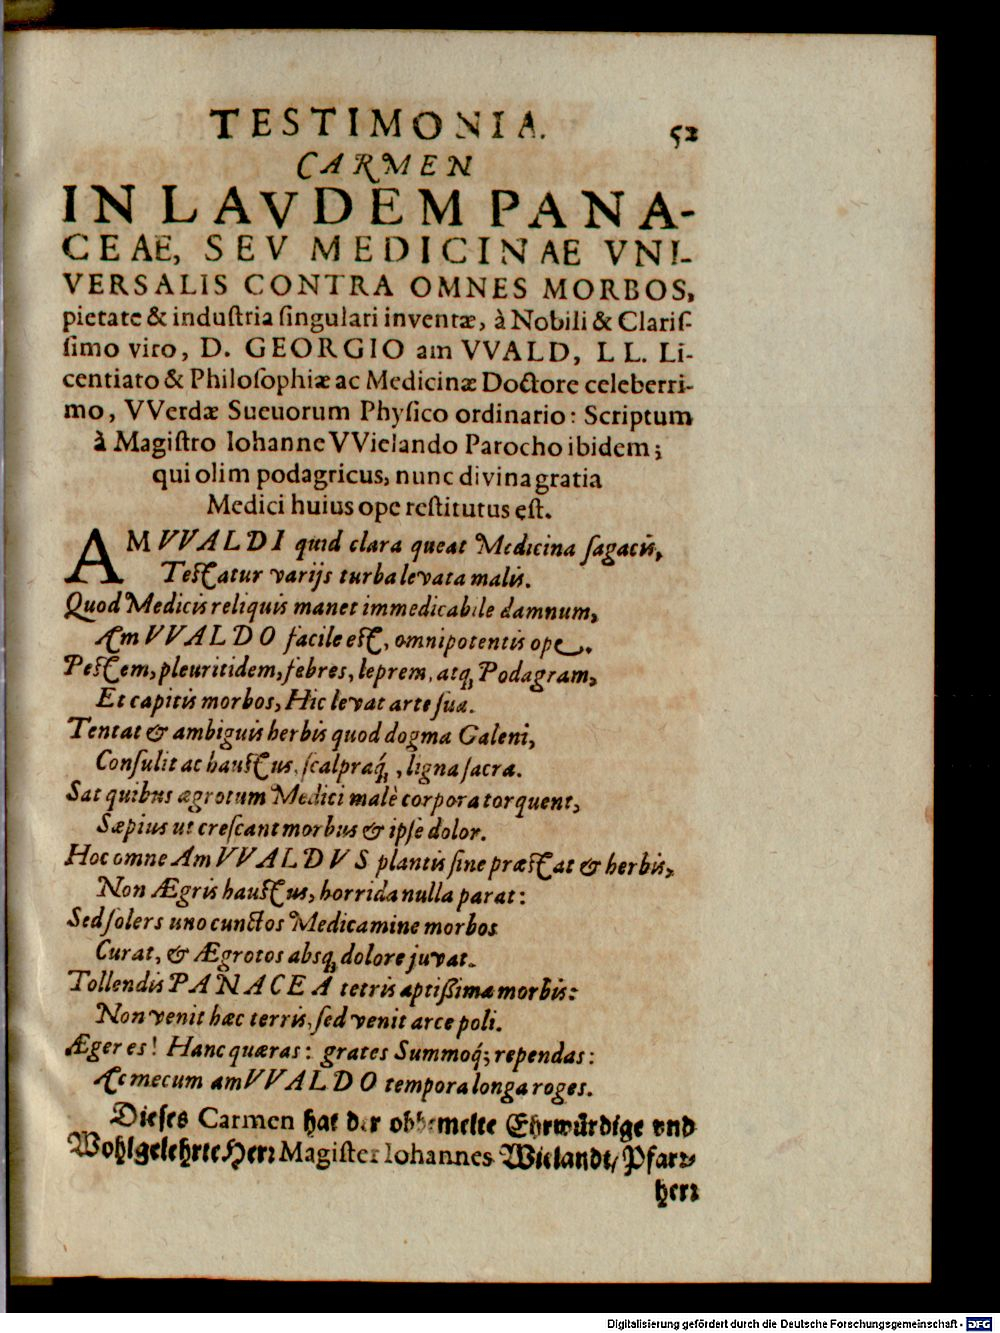 TESTIMONIA. 52
CARMEN
IN LAVDEM PANA-
CEAE, SEV MEDICINAE VNI-
VERSALIS CONTRA OMNES MORBOS,
pietate & industria singulari inventæ, à Nobili & Claris-
simo viro, D. GEORGIO am VVALD, LL. Li-
centiato & Philosophiæ ac Medicinæ Doctore celeberri-
mo, VVerdæ Sueuorum Physico ordinario: Scriptum
à Magistro Iohanne VVielando Parocho ibidem;
qui olim podagricus, nunc divina gratia
Medici huius ope restitutus est.
AM VVALDI quid clara queat Medicina sagacis,
Testatur varijs turba levata malis.
Quod Medicis reliquis manet immedicabile damnum,
Am VVALDO facile est, omnipotentis ope.
Pestem, pleuritidem, febres, leprem, atq; Podagram,
Et capitis morbos, Hic levat arte sua.
Tentat & ambiguis herbis quod dogma Galeni,
Consulit ac haustus, scalpraq́;, ligna sacra.
Sat quibus ægrotum Medici malè corpora torquent,
Sæpius ut crescant morbus & ipse dolor.
Hoc omne Am VVALDVS plantis sine præstat & herbis,
Non Ægris haustus, horrida nulla parat:
Sed solers uno cunctos Medicamine morbos
Curat, & Ægrotos absq; dolore juvat.
Tollendis PANACEA tetris aptißima morbis:
Non venit hæc terris, sed venit arce poli.
Æger es! Hanc quæras: grates Summoq́; rependas:
Ac mecum am VVALDO tempora longa roges.
Dieses Carmen hat der obbemelte Ehrwürdige vnd
Wohlgelehrte Herr Magister Iohannes Wielandt/ Pfar-
herr
Digitalisierung gefördert durch die Deutsche Forschungsgemeinschaft - DFG